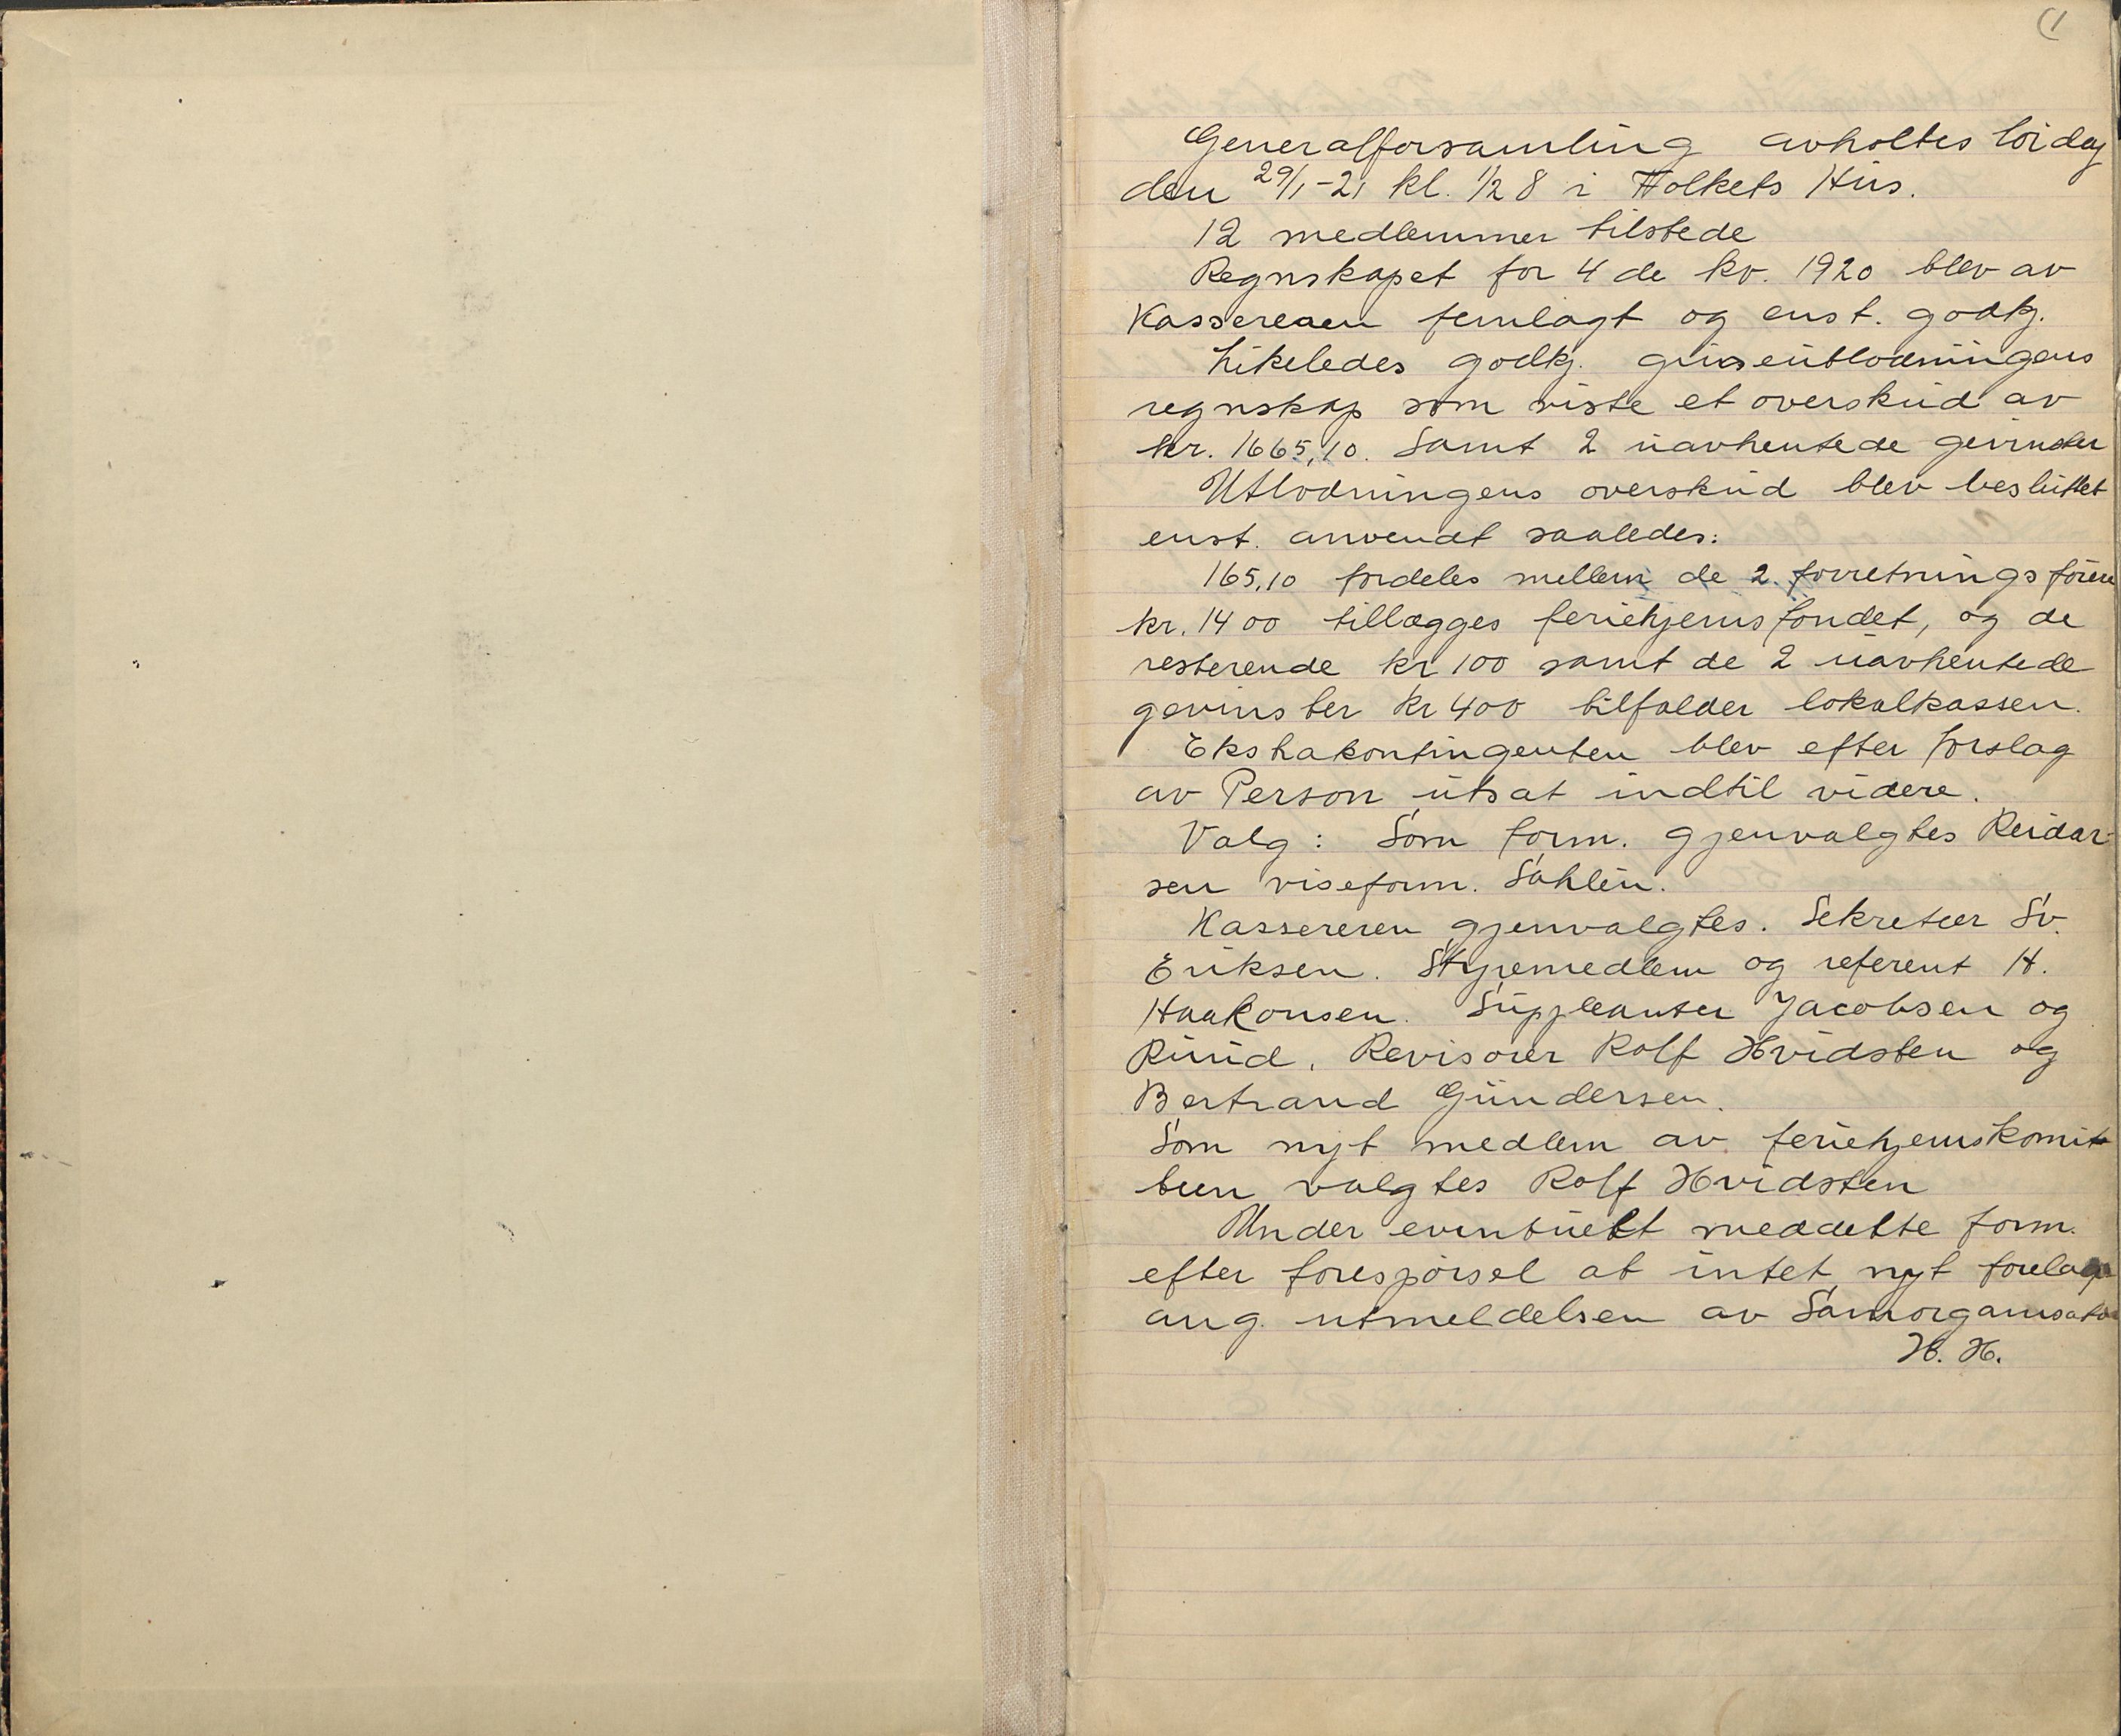 (1
Generalforsamling avholtes lördag
den 29/1-21 kl. 1/2 8 i Folkets Hus.
12 medlemmer tilstede
Regnskapet for 4de kv. 1920 blev av
Kassereren femlagt og enst. godkj.
Likeledes godkj. griseutlodningens
regnskap som viste et overskud av
kr. 1665,10. Samt 2 uavhentede gevinster
Utlodningens overskud blev besluttet
enst. anvendt saaledes:
165,10 fordeles mellem de 2 forretningsförere
kr. 1400 tillægges feriehjemsfondet, og de
resterende kr 100 samt de 2 uavhentede
gevinster kr 400 tilfalder lokalkassen.
Ekstrakontingenten blev efter forslag
av Person utsat indtil videre.
Valg: Som form. gjenvalgtes Reidar-
sen viseform. Sahlin.
Kassereren gjenvalgtes. Sekretær Sv.
Eriksen. Styremedlem og referent H.
Haakonsen. Suppleanter Jacobsen og
Ruud. Revisorer Rolf Hvidsten og
Bertrand Gundersen.
Som nyt medlem av feriehjemskomit-
teen valgtes Rolf Hvidsten
Under eventuelt meddelte form.
efter forespörsel at intet nyt forelaa
ang. utmeldelsen av Samorganisation
H. H.